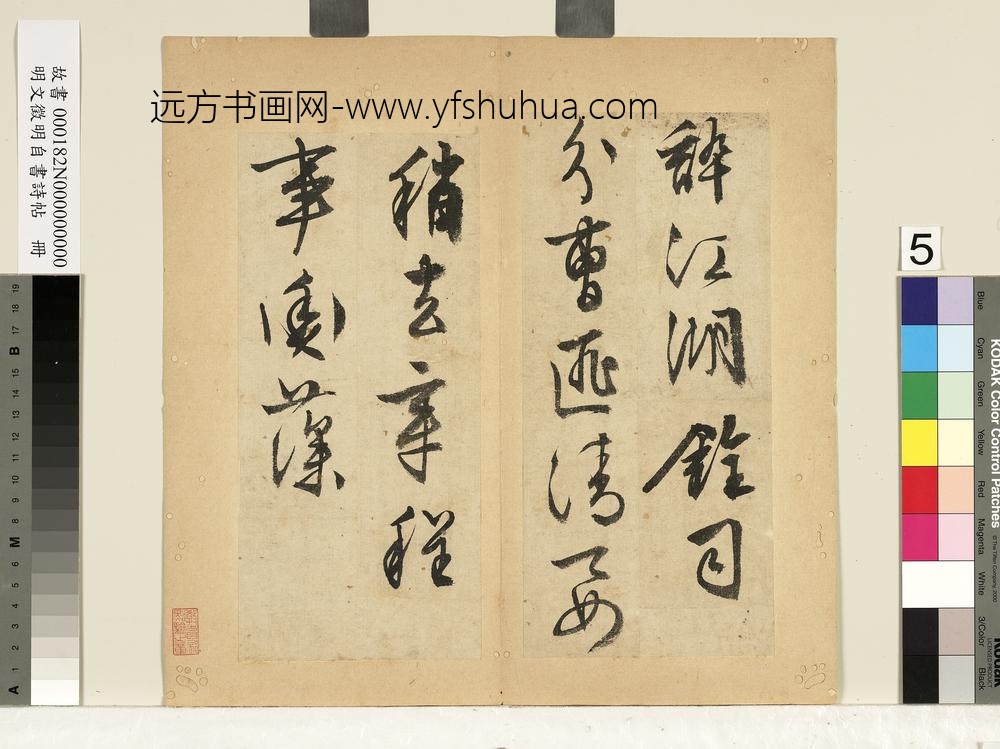 远方书画网-www.yfshuhua.com
江湖銓司
分曹匪清要
稍去章程
事衡藻
故書 000182N000000000
明文徵明自書詩帖 冊
5
KODAK Color Control Patches
© The Tiffen Company, 2000
Kodak
LICENSED PRODUCT
Blue
Cyan
Green
Yellow
Red
Magenta
White
3/Color
Black
A 1 2 3 4 5 6 M 8 9 10 11 12 13 14 15 B 17 18 19